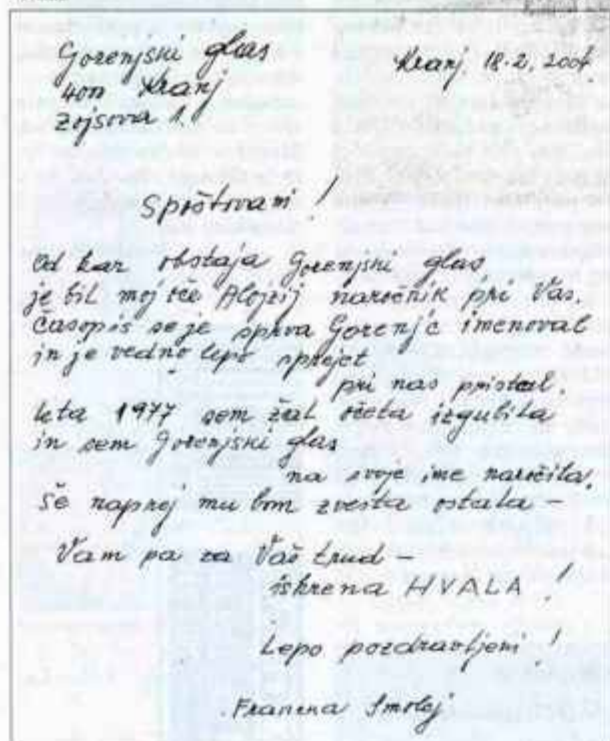 Gorenjski glas
Kranj, 18.2.2004
4000 Kranj
Zojsova 1.
Spoštovani!
Od kar obstaja Gorenjski glas,
je bil moj oče Alojzij naročnik pri Vas.
Časopis se je sprva Gorenjc imenoval
in je vedno lepo sprejet
pri nas pristal.
leta 1977 sem žal očeta izgubila
in sem Gorenjski glas
na svoje ime naročila.
Še naprej mu bom zvesta ostala –
Vam pa za Vaš trud –
iskrena HVALA!
Lepo pozdravljeni!
Smolej